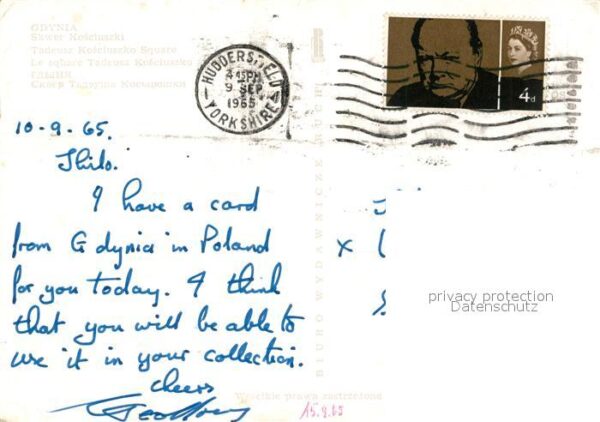 GDYNIA
Skwer Kościuszki
Tadeusz Kościuszko Square
Le sqare Tadeusz Kościuszko
ГДЫНЯ
Сквер Тадеуша Костюшки
HUDDERSFIELD
YORKSHIRE
PM
9 SEP
1965
4d
10-9.65.
I have a card
from Gdynia in Poland
for you today. I think
that you will be able to
use it in your collection.
cheers
Geoffrey
BIURO WYDAWNICZE RUCH
x
privacy protection
Datenschutz
Wszelkie prawa zastrzeżone
15.9.65